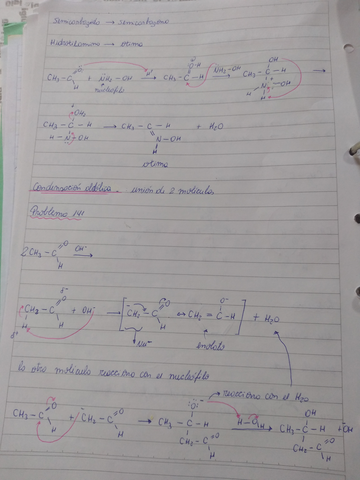 Semicarbazida → semicarbazona
Hidroxilamina → oxima
CH₃-C=O H + NH₂-OH → CH₃-C-H + NH₂-OH →
nucleófilo
CH₃-C-H → CH₃-C-H + H₂O
N-OH
oxima
Condensación aldólica. unión de 2 moléculas
Problema 141
2CH₃-C=O H OH⁻ →
CH₂-C=O H + OH⁻ → [CH₂-C=O H ↔ CH₂=C-H] + H₂O
Nu⁻ enolato
la otra molécula reacciona con el nucleófilo
reacciona con el H₂O
CH₃-C=O H + CH₂-C=O H → CH₃-C-H CH₂-C=O H H-O-H → CH₃-C-H CH₂-C=O H + OH